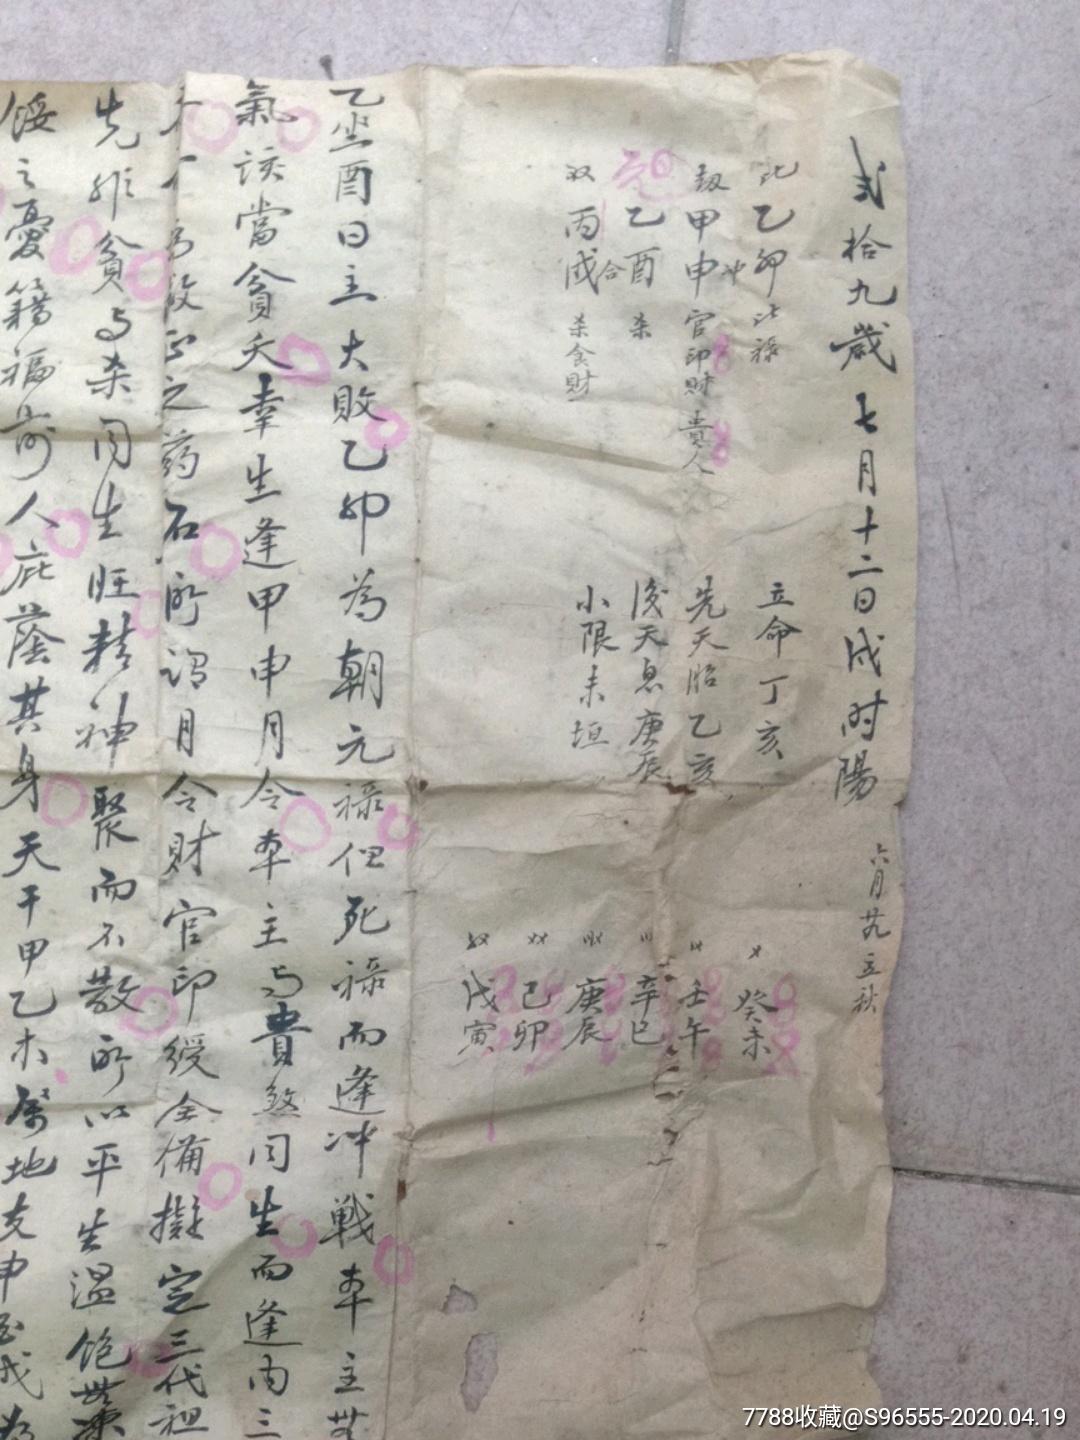 弍拾九歲七月十二日戌时陽
六月廿九立秋
比乙卯比祿
劫甲申官印財貴人
冲
乙酉杀
合
丙戌杀食財
立命丁亥
先天胎乙亥
後天息庚辰
小限未垣
癸未
壬午
辛巳
庚辰
己卯
戊寅
乙坐酉日主大敗乙卯為朝元祿但死祿而逢冲戰本主
氣該當貧夭幸生逢甲申月令本主与貴煞同生而逢丙三
之药石所谓月令財官印綬全備擬定三代祖
先非貧与杀同生旺精神聚而不散所以平生温飽無
餒之憂籍福前人庇蔭其身天干甲乙木属地支申酉戌為
7788收藏@S96555-2020.04.19